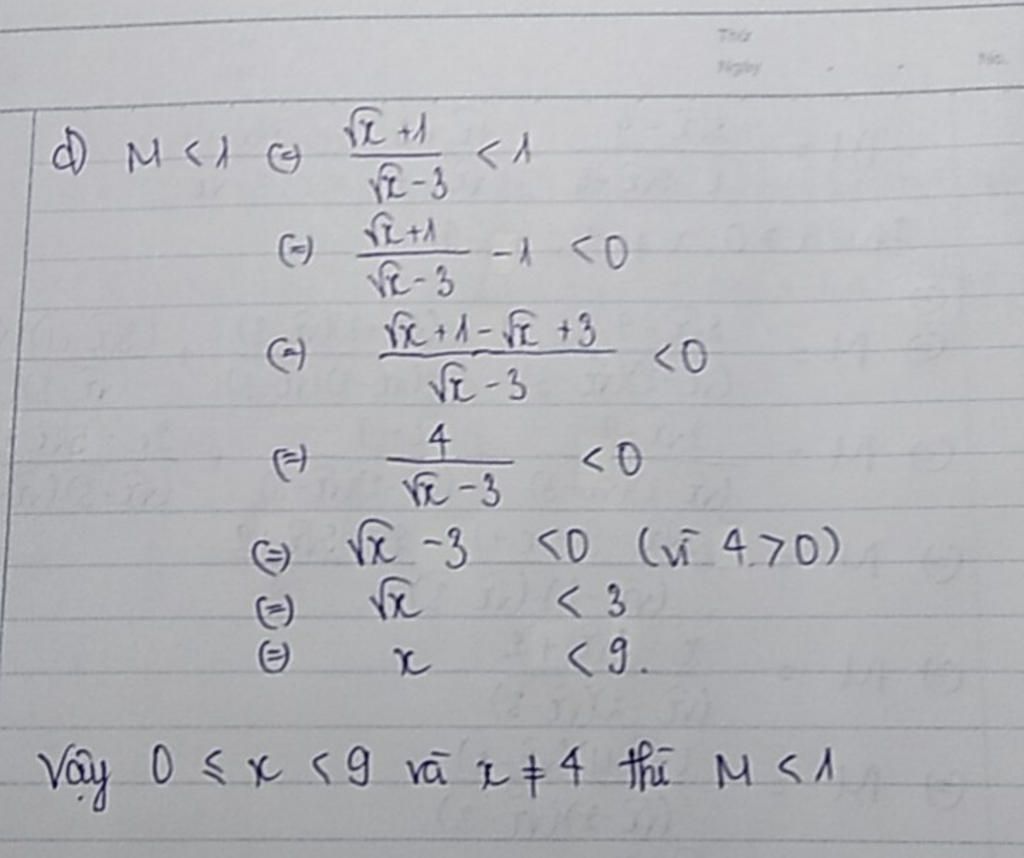 Thứ
Ngày . . No.
d) M < 1 (=) \frac{\sqrt{x}+1}{\sqrt{x}-3} < 1
(=) \frac{\sqrt{x}+1}{\sqrt{x}-3} - 1 < 0
(=) \frac{\sqrt{x}+1-\sqrt{x}+3}{\sqrt{x}-3} < 0
(=) \frac{4}{\sqrt{x}-3} < 0
(=) \sqrt{x} - 3 < 0 (vì 4 > 0)
(=) \sqrt{x} < 3
(=) x < 9.
Vậy 0 ≤ x < 9 và x ≠ 4 thì M < 1